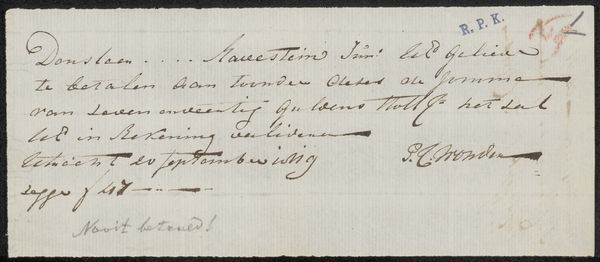 R. P. K.
Ravestein Junr. UEd gelieve
te betalen aan toonder deses de somme
van seven en veertig guldens Holl. het sal
UEd in Rekening
Utrecht 20 September
P. C. Wonder
segge f 47
Nooit betaald!